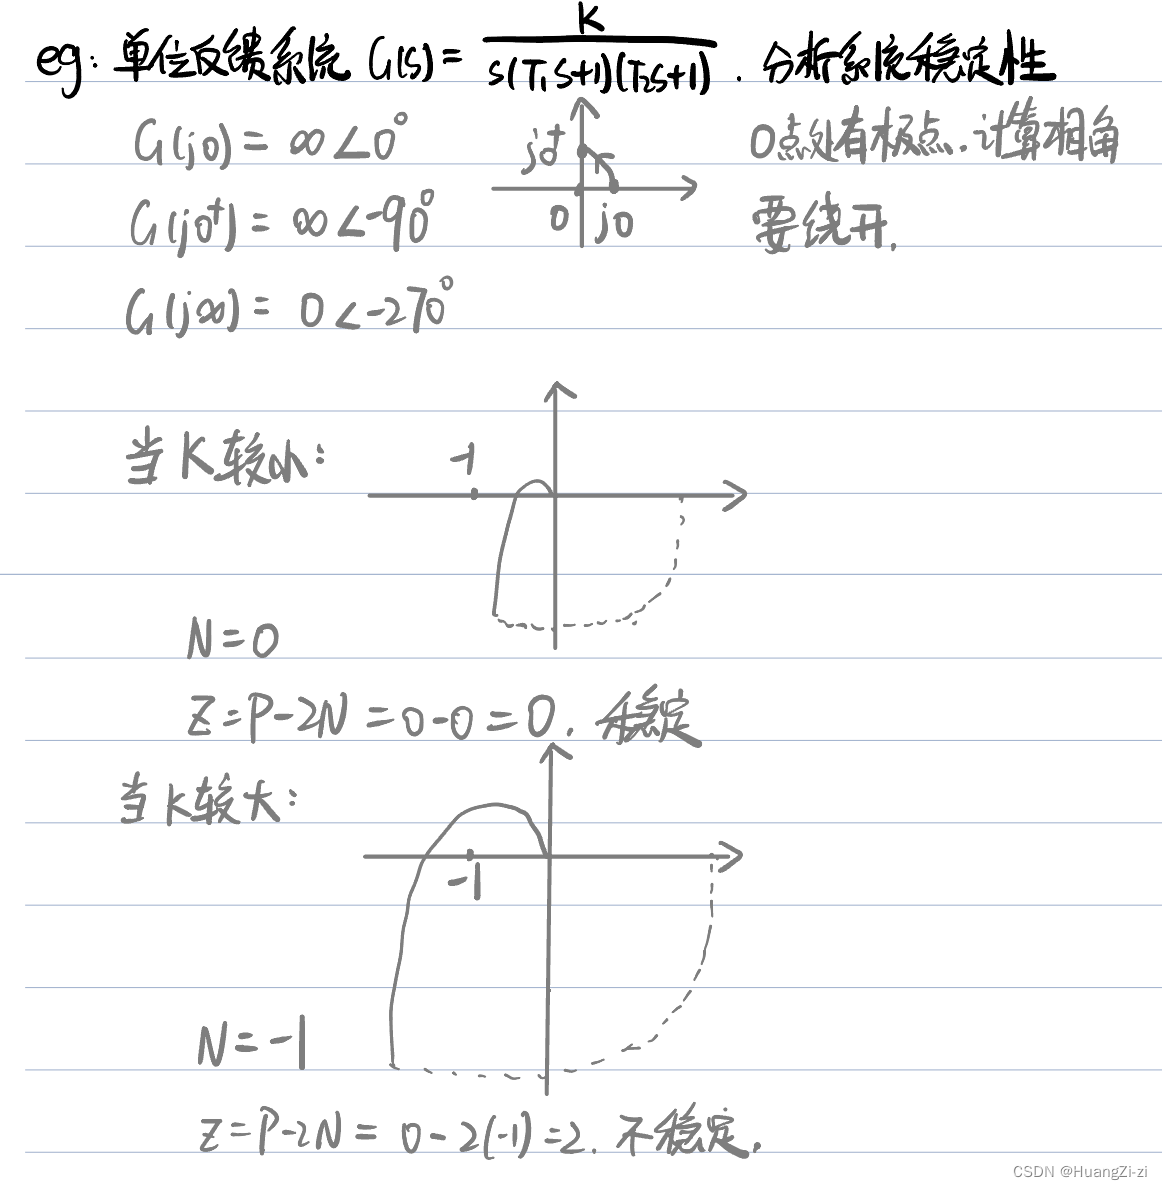 eg: 单位反馈系统 G(s)= K / s(T₁s+1)(T₂s+1) . 分析系统稳定性
G(j0) = ∞∠0°
j0⁺
0点处有极点.计算相角
G(j0⁺) = ∞∠-90°
0 j0
要绕开.
G(j∞) = 0∠-270°
当K较小:
-1
N=0
Z=P-2N=0-0=0. 稳定
当K较大:
-1
N=-1
Z=P-2N= 0-2(-1)=2. 不稳定.
CSDN @HuangZi-zi